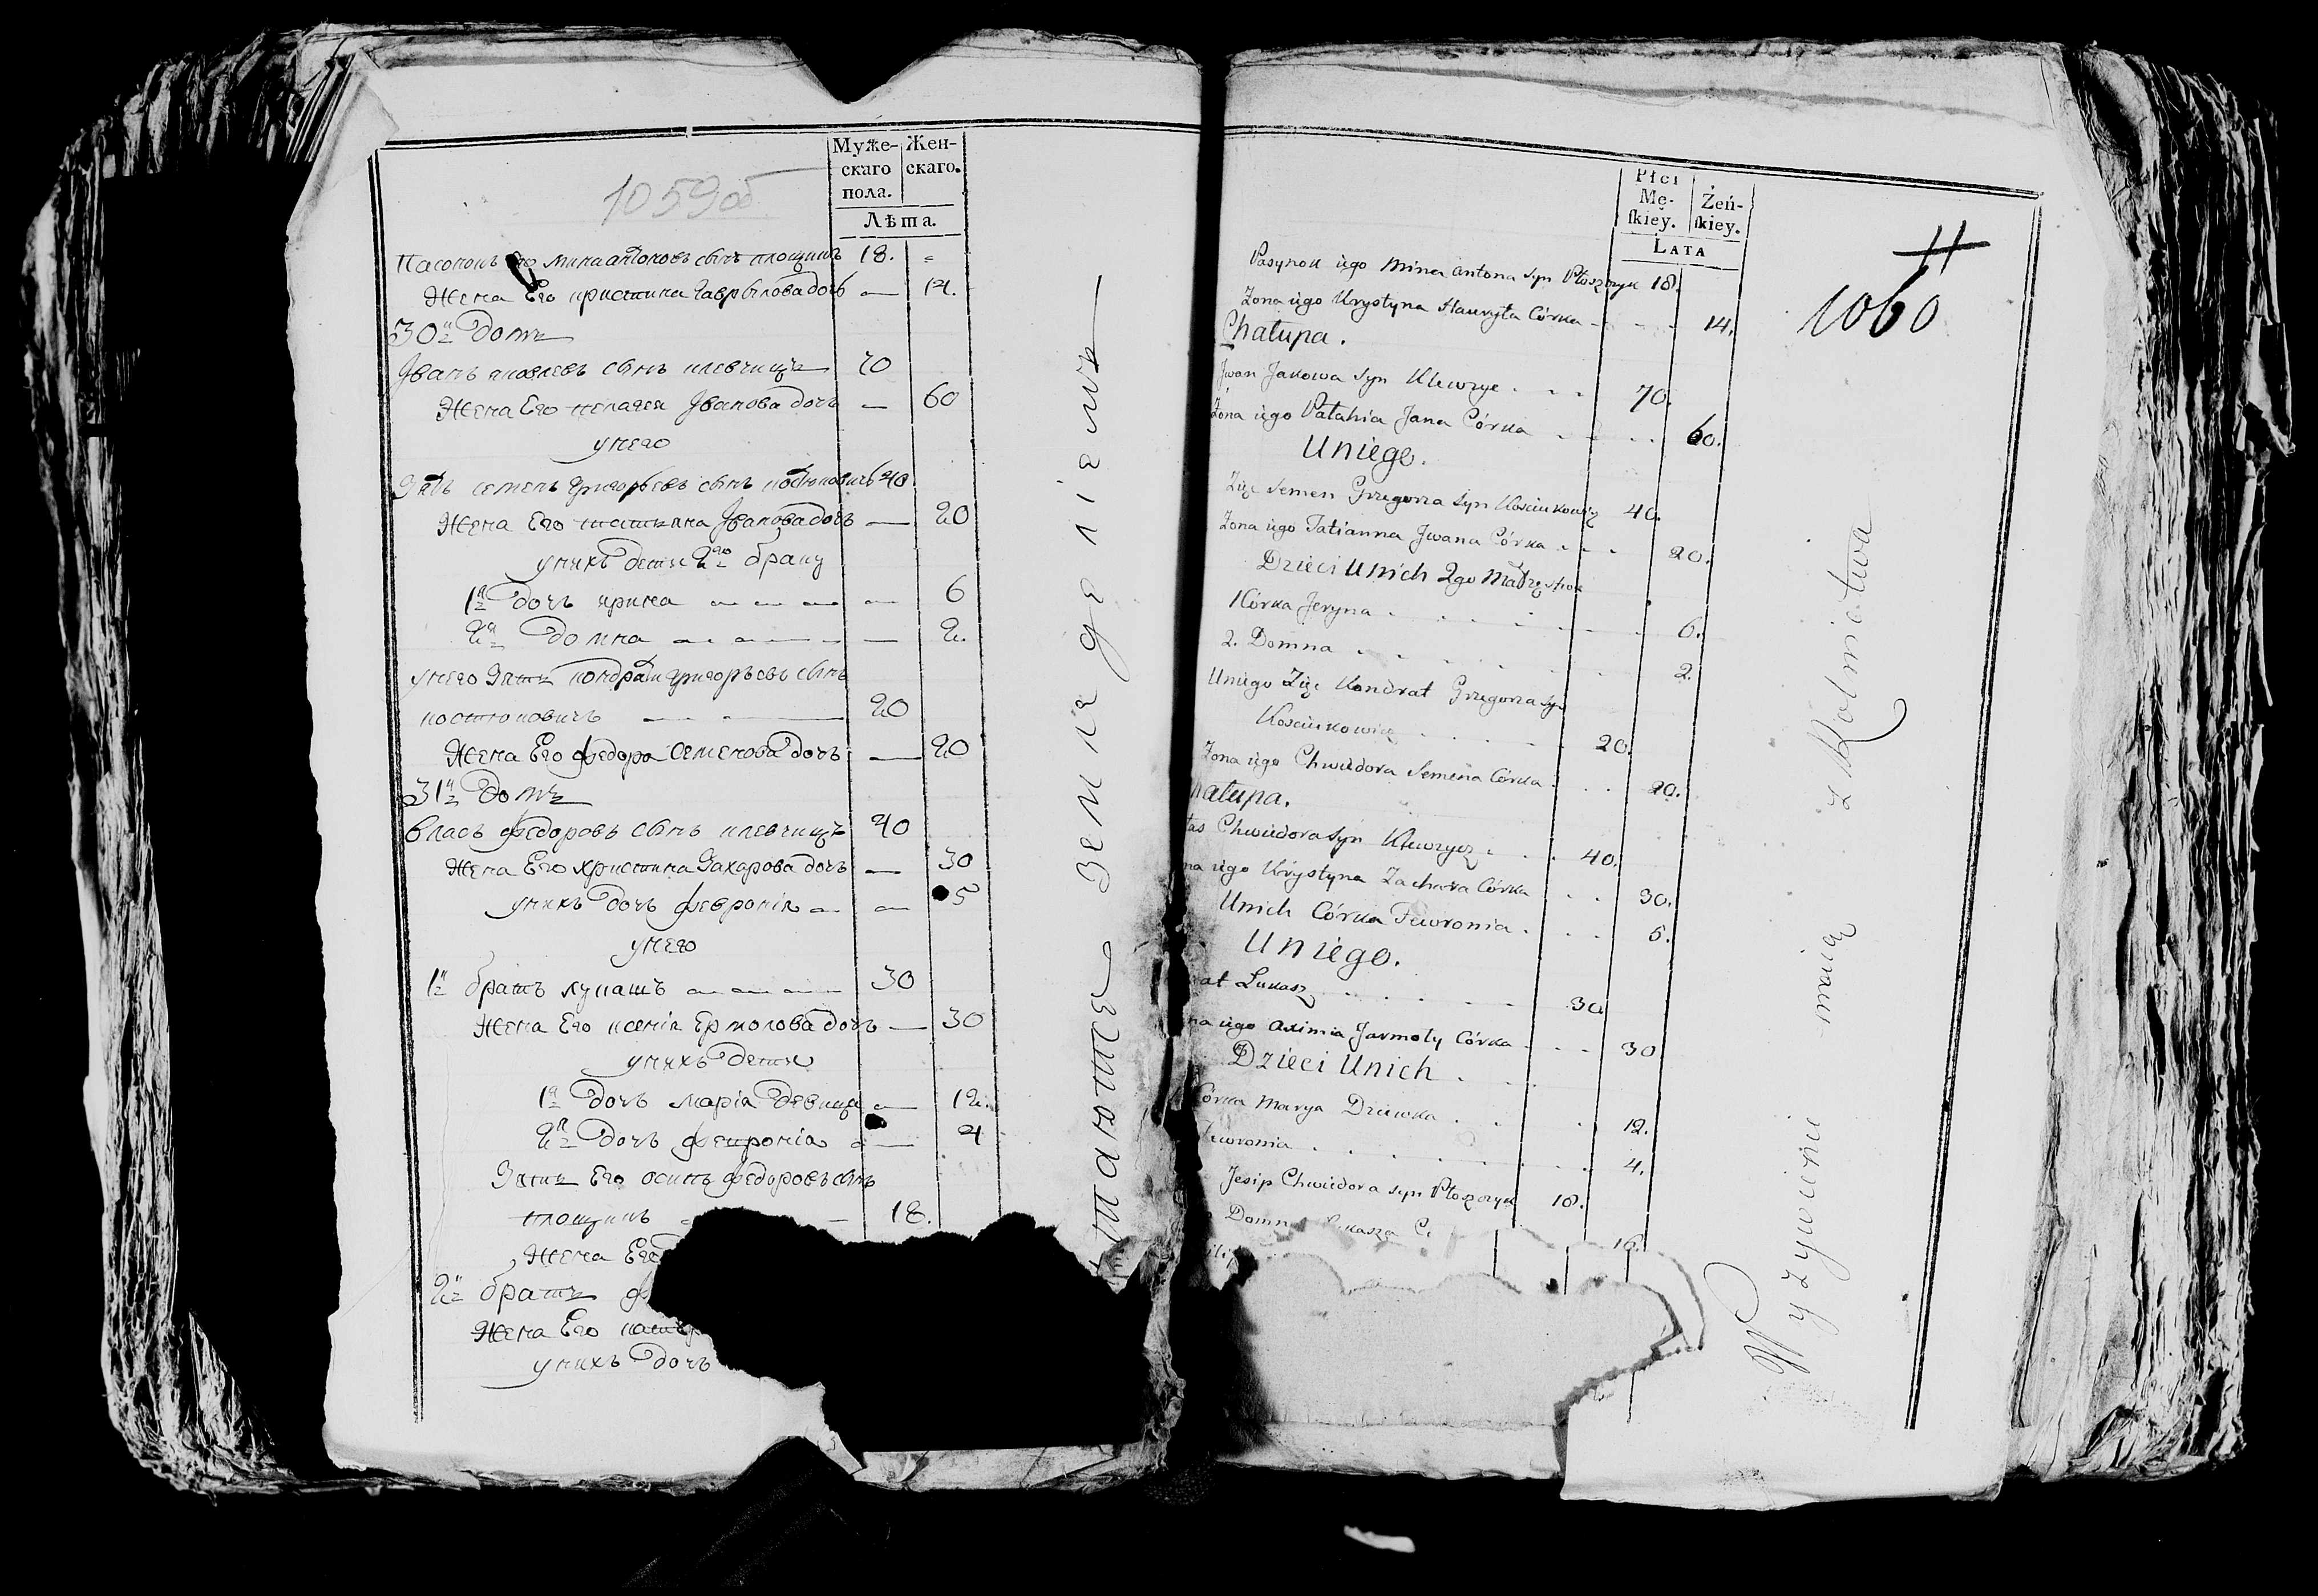 1059об
Муже-
скаго
пола.
Жен-
скаго.
Лѣта.
Пасонокъ его мина антоновъ сынъ площикъ 18.
Жена Его кристина гаврылова дочъ — 14.
30й Домъ
Јванъ яковлевъ сынъ клевчицъ 70
Жена Его пелагея Јванова дочъ — 60
унего
Зять семенъ григорьевъ сынъ костюковичъ 40.
Жена Его татьяна Јванова дочъ — 20
унихъ дети 2го браку
1я дочъ ирина — 6
2я домна — 2.
унего Зять кондрат григорьевъ сынъ
костюковичъ — 20
Жена Его федора Семенова дочъ — 20
31й Домъ
власъ федоровъ сынъ клевчицъ 40
Жена Его христина Захарова дочъ — 30
унихъ дочъ февронія — 5
унего
1й братъ лукашъ — 30
Жена Его ксенія Ермолова дочъ — 30
унихъ дети
1я дочъ марія девица — 12.
2я дочъ февронія — 4
Зять Его осипъ федоровъ сынъ
площикъ 18.
Жена Его
2й братъ
Жена Его
унихъ дочъ
земляделіемъ
Płci
Mę-
ſkiey.
Żeń-
ſkiey.
LATA
1060
Pasynok iego Mina Antona syn Płoszczyk 18.
Żona iego Krystyna Hauryła Córka - - - 14.
Chałupa.
Jwan Jakowa syn Klewzyc . . . 70.
Żona iego Pałahia Jana Córka . . . 60.
Uniego.
Zięc Semen Grzegorza syn Kosciukowicz 40.
Żona iego Tatianna Jwana Córka . . . 20.
Dzieci Unich 2go Małżęstwa
1 Córka Jeryna . . . 6.
2. Domna . . . 2.
Uniego Zięc Kondrat Grzegorza syn
Kosciukowicz . . . 20.
Żona iego Chwiedora Semena Córka . . . 20.
hałupa.
łas Chwiedora syn Klewzycz . . . 40.
na iego Krystyna Zachara Córka . . . 30.
Unich Córka Fewronia . . . 5.
Uniego.
rat Łukasz . . . 30
na iego Axinia Jarmoły Córka . . . 30
Dzieci Unich .
Córka Marya Dziewka . . . 12.
Fewronia . . . 4.
Jesip Chwiedora syn Płoszczyk 18.
Domn Łukasza C. 16.
Wyzywienie maią z Rolnictwa